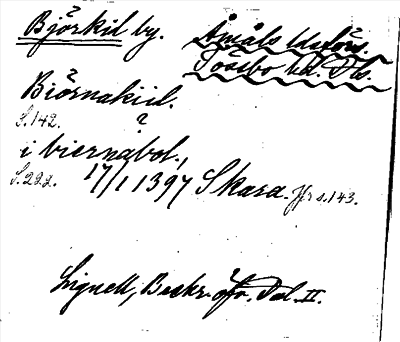 Björkil by. Åmåls landsförs.
Tössbo hd. Dls.
Biörnakiil.
S. 142. ?
i biernabol.,
S. 222. 17/1 1397 Skara. Jfr s. 143.
Lignell, Beskr. öfv. Dal. II.